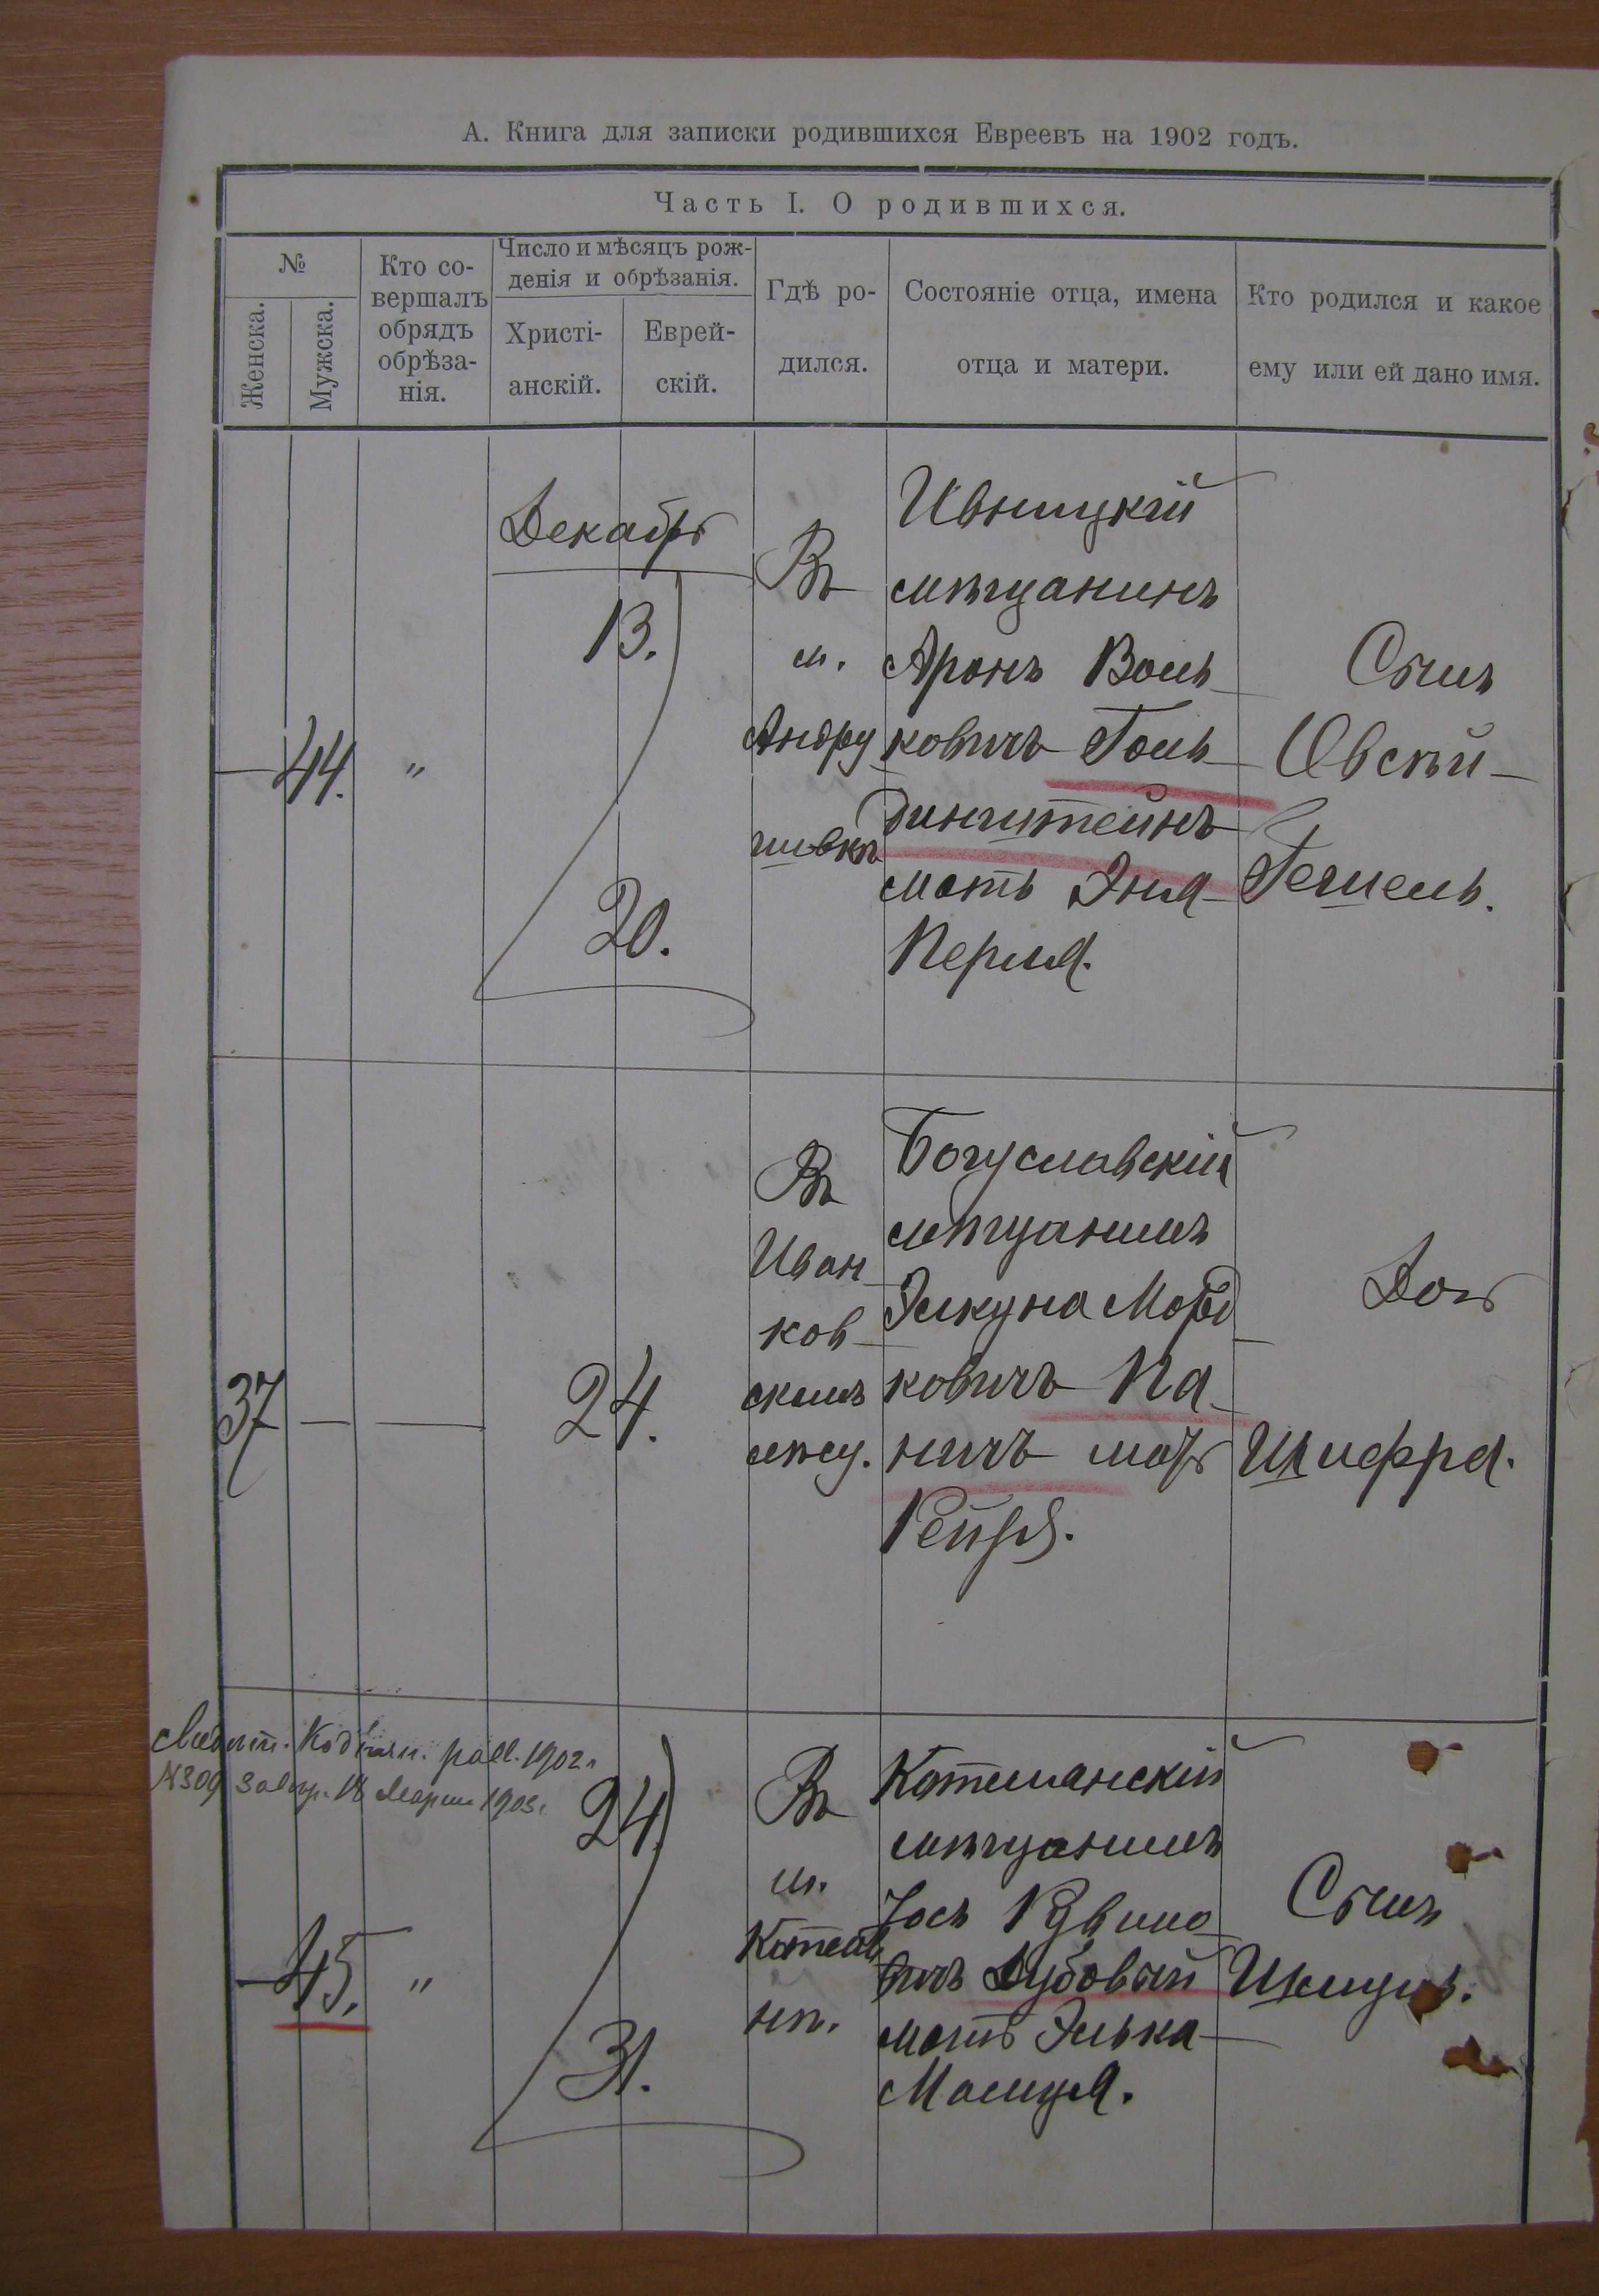 А. Книга для записки родившихся Евреевъ на 1902 годъ.
Часть I. О родившихся.
№
Женска.
Мужска.
Кто со-
вершалъ
обрядъ
обрѣза-
нія.
Число и мѣсяцъ рож-
денія и обрѣзанія.
Христі-
анскій.
Еврей-
скій.
Гдѣ ро-
дился.
Состояніе отца, имена
отца и матери.
Кто родился и какое
ему или ей дано имя.
44.
"
Декабрь
13.
20.
Въ
м.
Андру
шовкѣ
Ивницкій
мѣщанинъ
Аронъ Воль
ковичъ Голь
динштейнъ
мать Эня
Перля.
Сынъ
Овсѣй
Гешель.
37
24.
Въ
Иван
ков
скомъ
Богуславскій
мѣщанинъ
Элкуна Морд
ковичъ Па
ничъ мать
Дочь
Шифра.
1902
№309 18 Марта 1903.
45.
"
24.
31.
Въ
м.
Котель
нѣ.
Котельянскій
мѣщанинъ
Іось
вичъ Дубовый
мать Элька
Малця.
Сынъ
Шмуль.